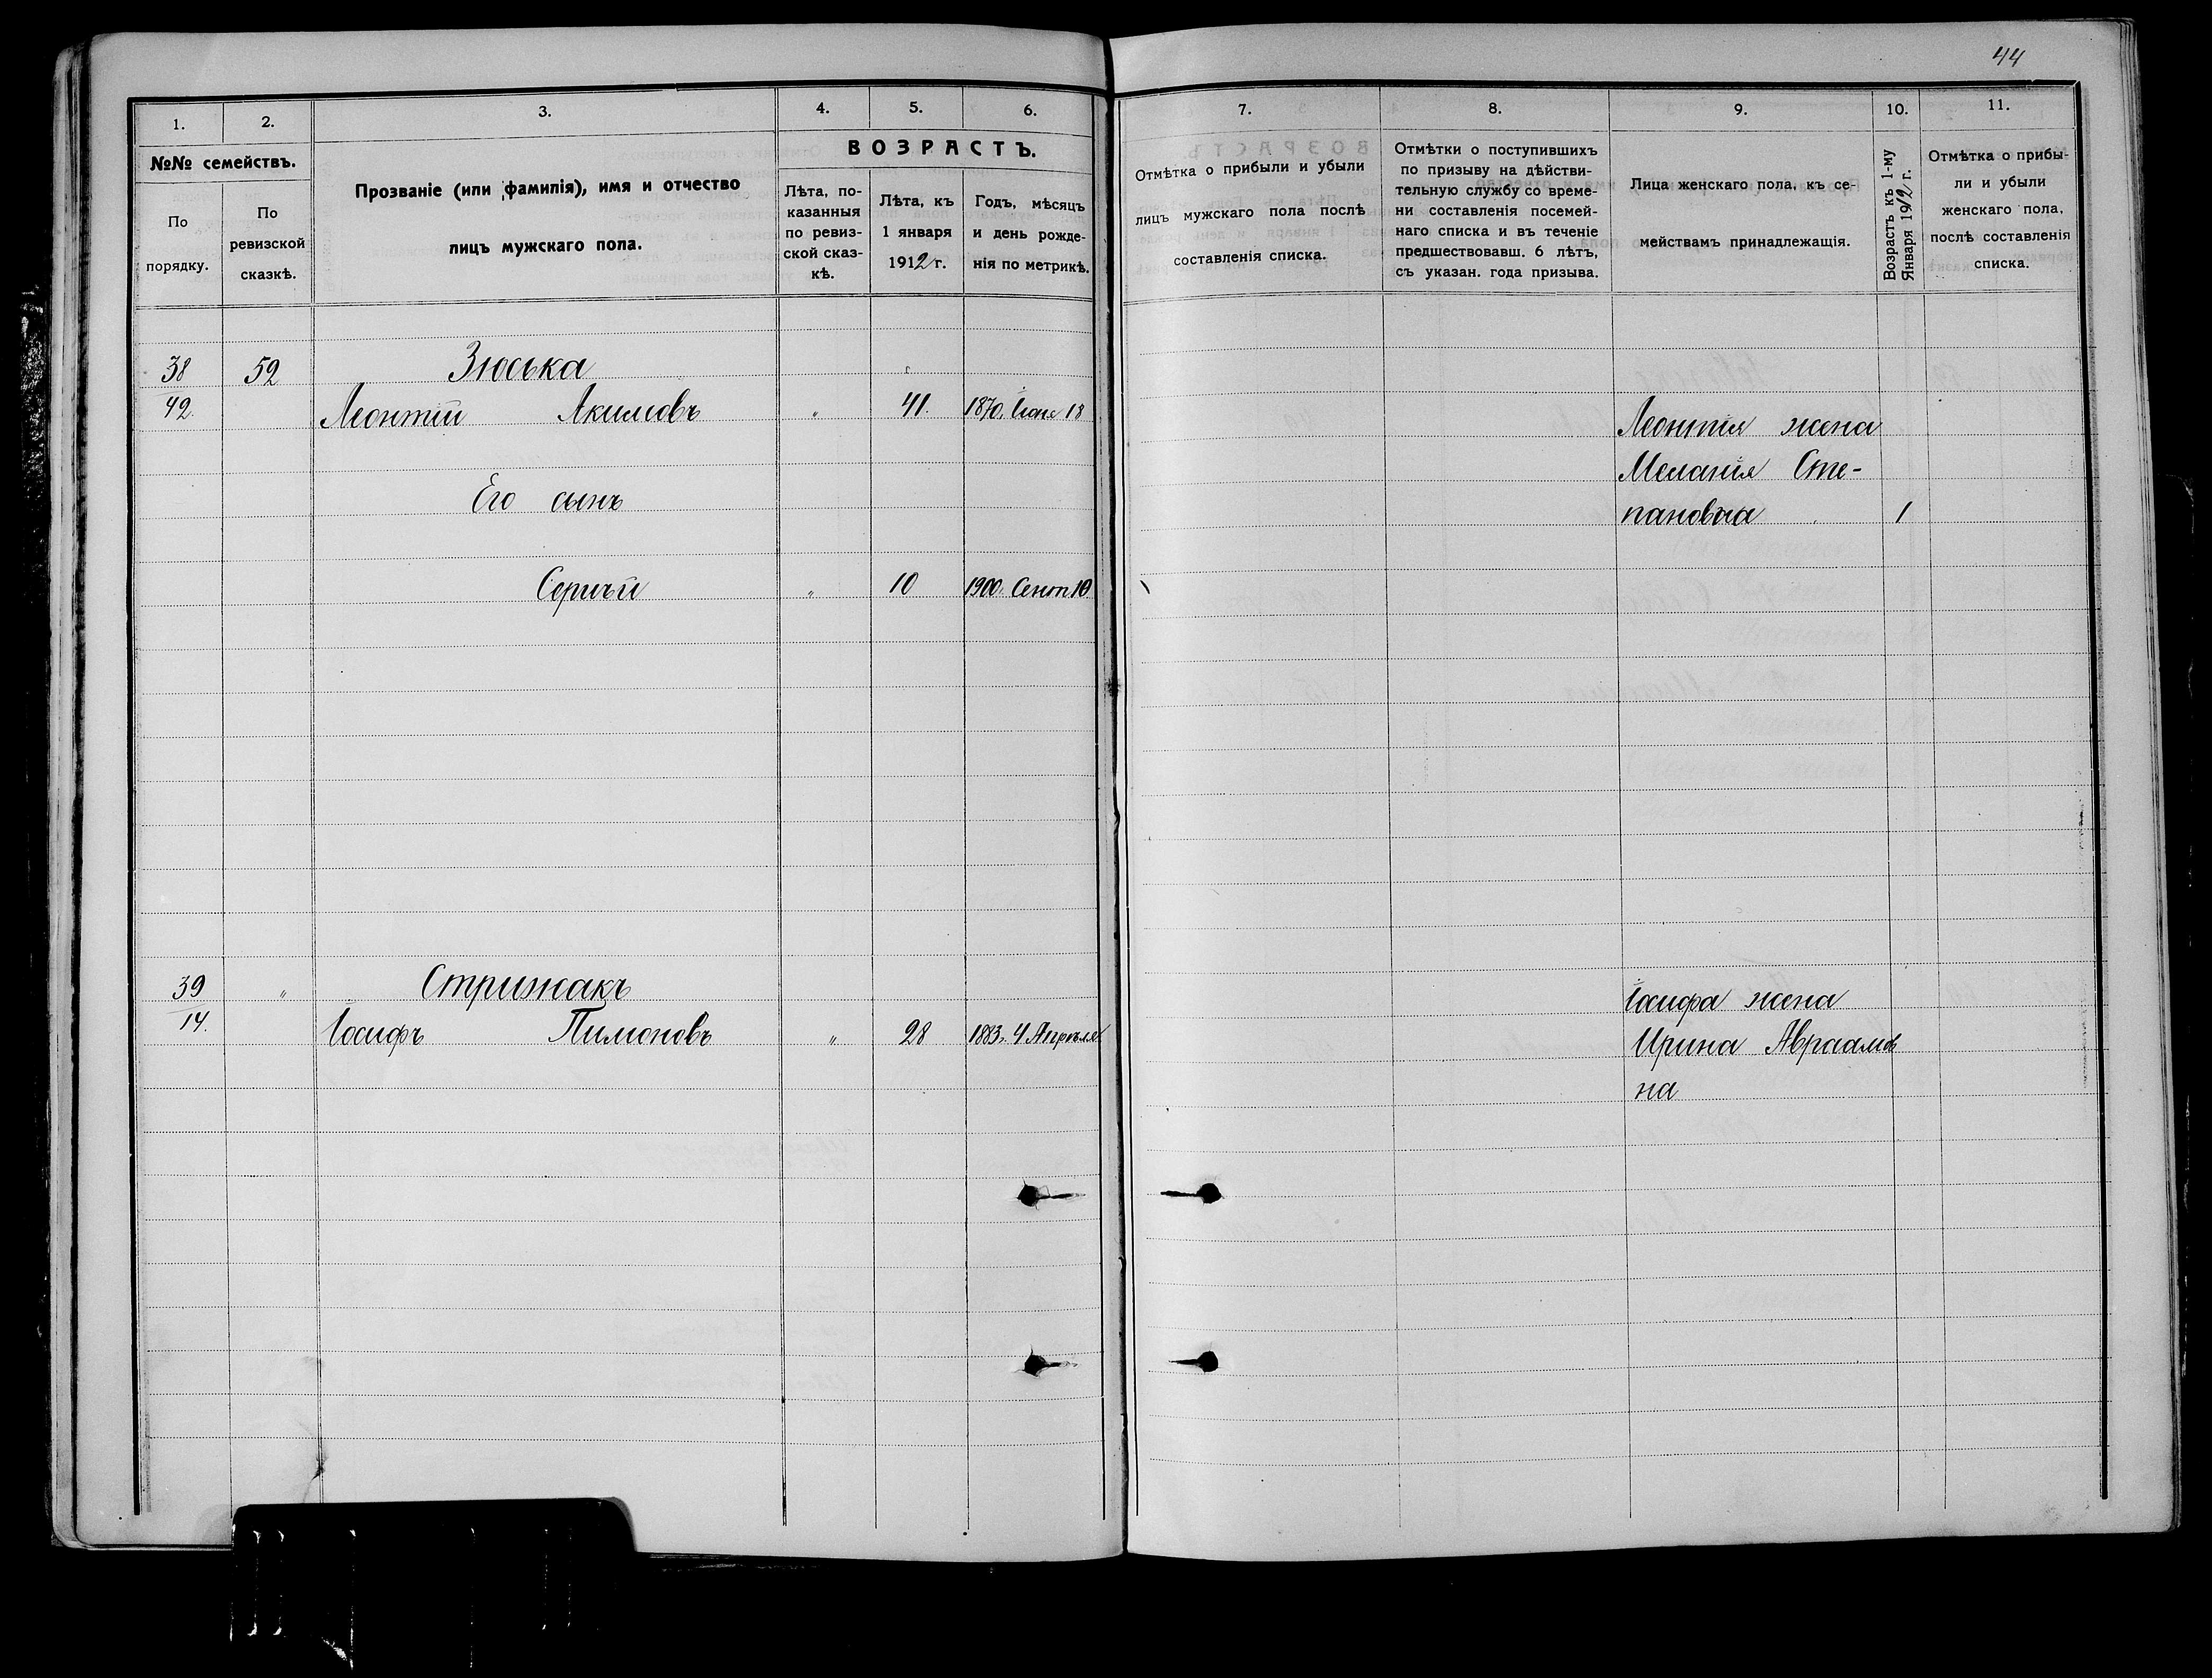 44
1. 2. 3. 4. 5. 6.
№№ семействъ.
По порядку.
По ревизской сказкѣ.
Прозваніе (или фамилія), имя и отчество
лицъ мужскаго пола.
ВОЗРАСТЪ.
Лѣта, по-
казанныя
по ревиз-
ской сказ-
кѣ.
Лѣта, къ
1 января
1912 г.
Годъ, мѣсяцъ
и день рожде-
нія по метрикѣ.
7. 8. 9. 10. 11.
Отмѣтка о прибыли и убыли
лицъ мужскаго пола послѣ
составленія списка.
Отмѣтки о поступившихъ
по призыву на дѣйстви-
тельную службу со време-
ни составленія посемей-
наго списка и въ теченіе
предшествовавш. 6 лѣтъ,
съ указан. года призыва.
Лица женскаго пола, къ се-
мействамъ принадлежащія.
Возрастъ къ 1-му
Января 1912 г.
Отмѣтка о прибы-
ли и убыли
женскаго пола,
послѣ составленія
списка.
38 52 Зюська
42. Леонтій Акимовъ " 41. 1870. Іюня 18
Его сынъ
Сергѣй " 10 1900. Сент 10
Леонтія жена
Меланія Сте-
пановна 1
39 " Стрижакъ
14. Іосифъ Пимоновъ " 28 1883. 4 Апрѣля
Іосифа жена
Ирина Авраамов
на